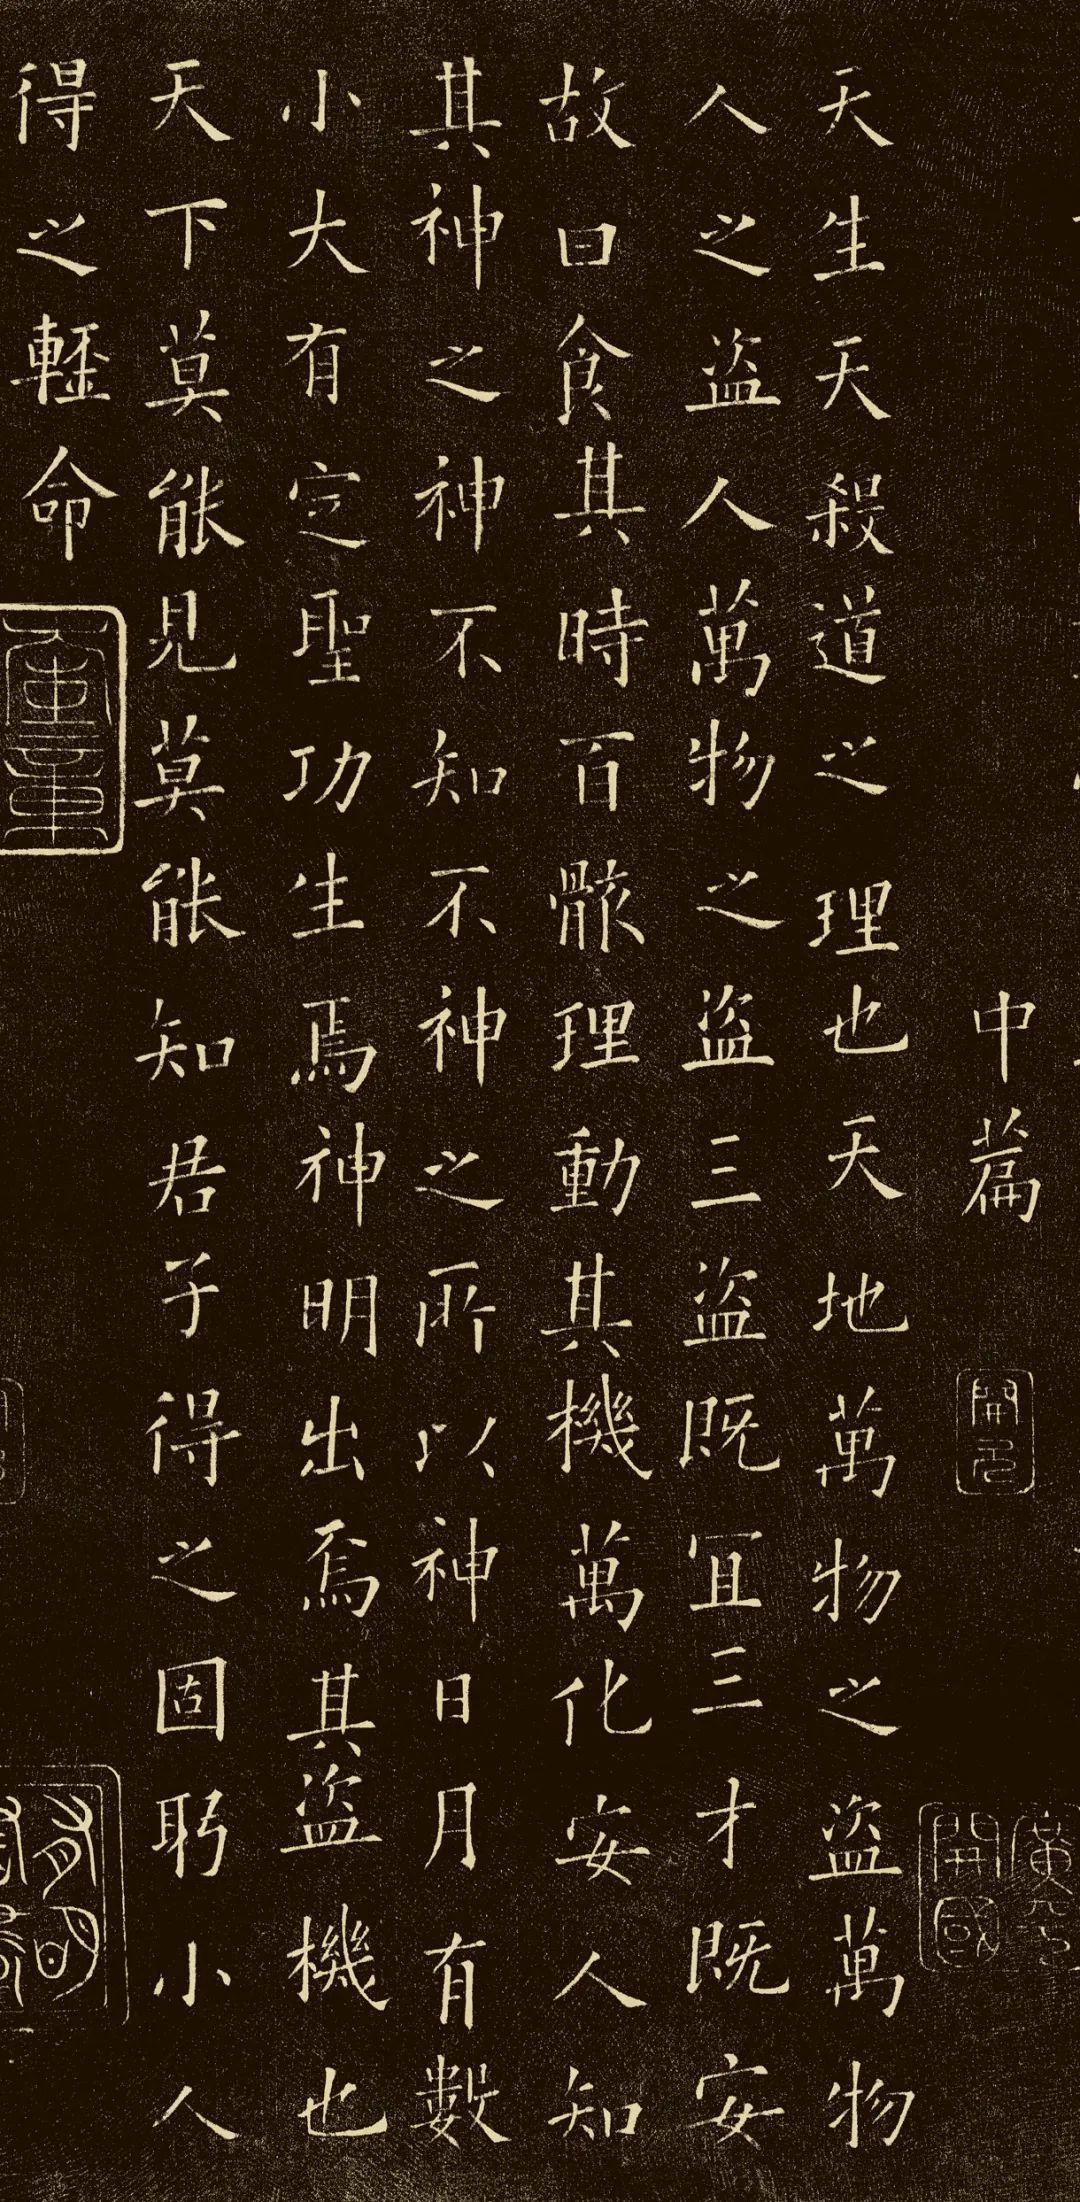 中篇
開元
天生天殺道之理也天地萬物之盗萬物
人之盗人萬物之盗三盗既冝三才既安
故曰食其時百骸理動其機萬化安人知
其神之神不知不神之所以神日月有數
小大有定聖功生焉神明出焉其盗機也
天下莫能見莫能知君子得之固躬小人
得之輕命